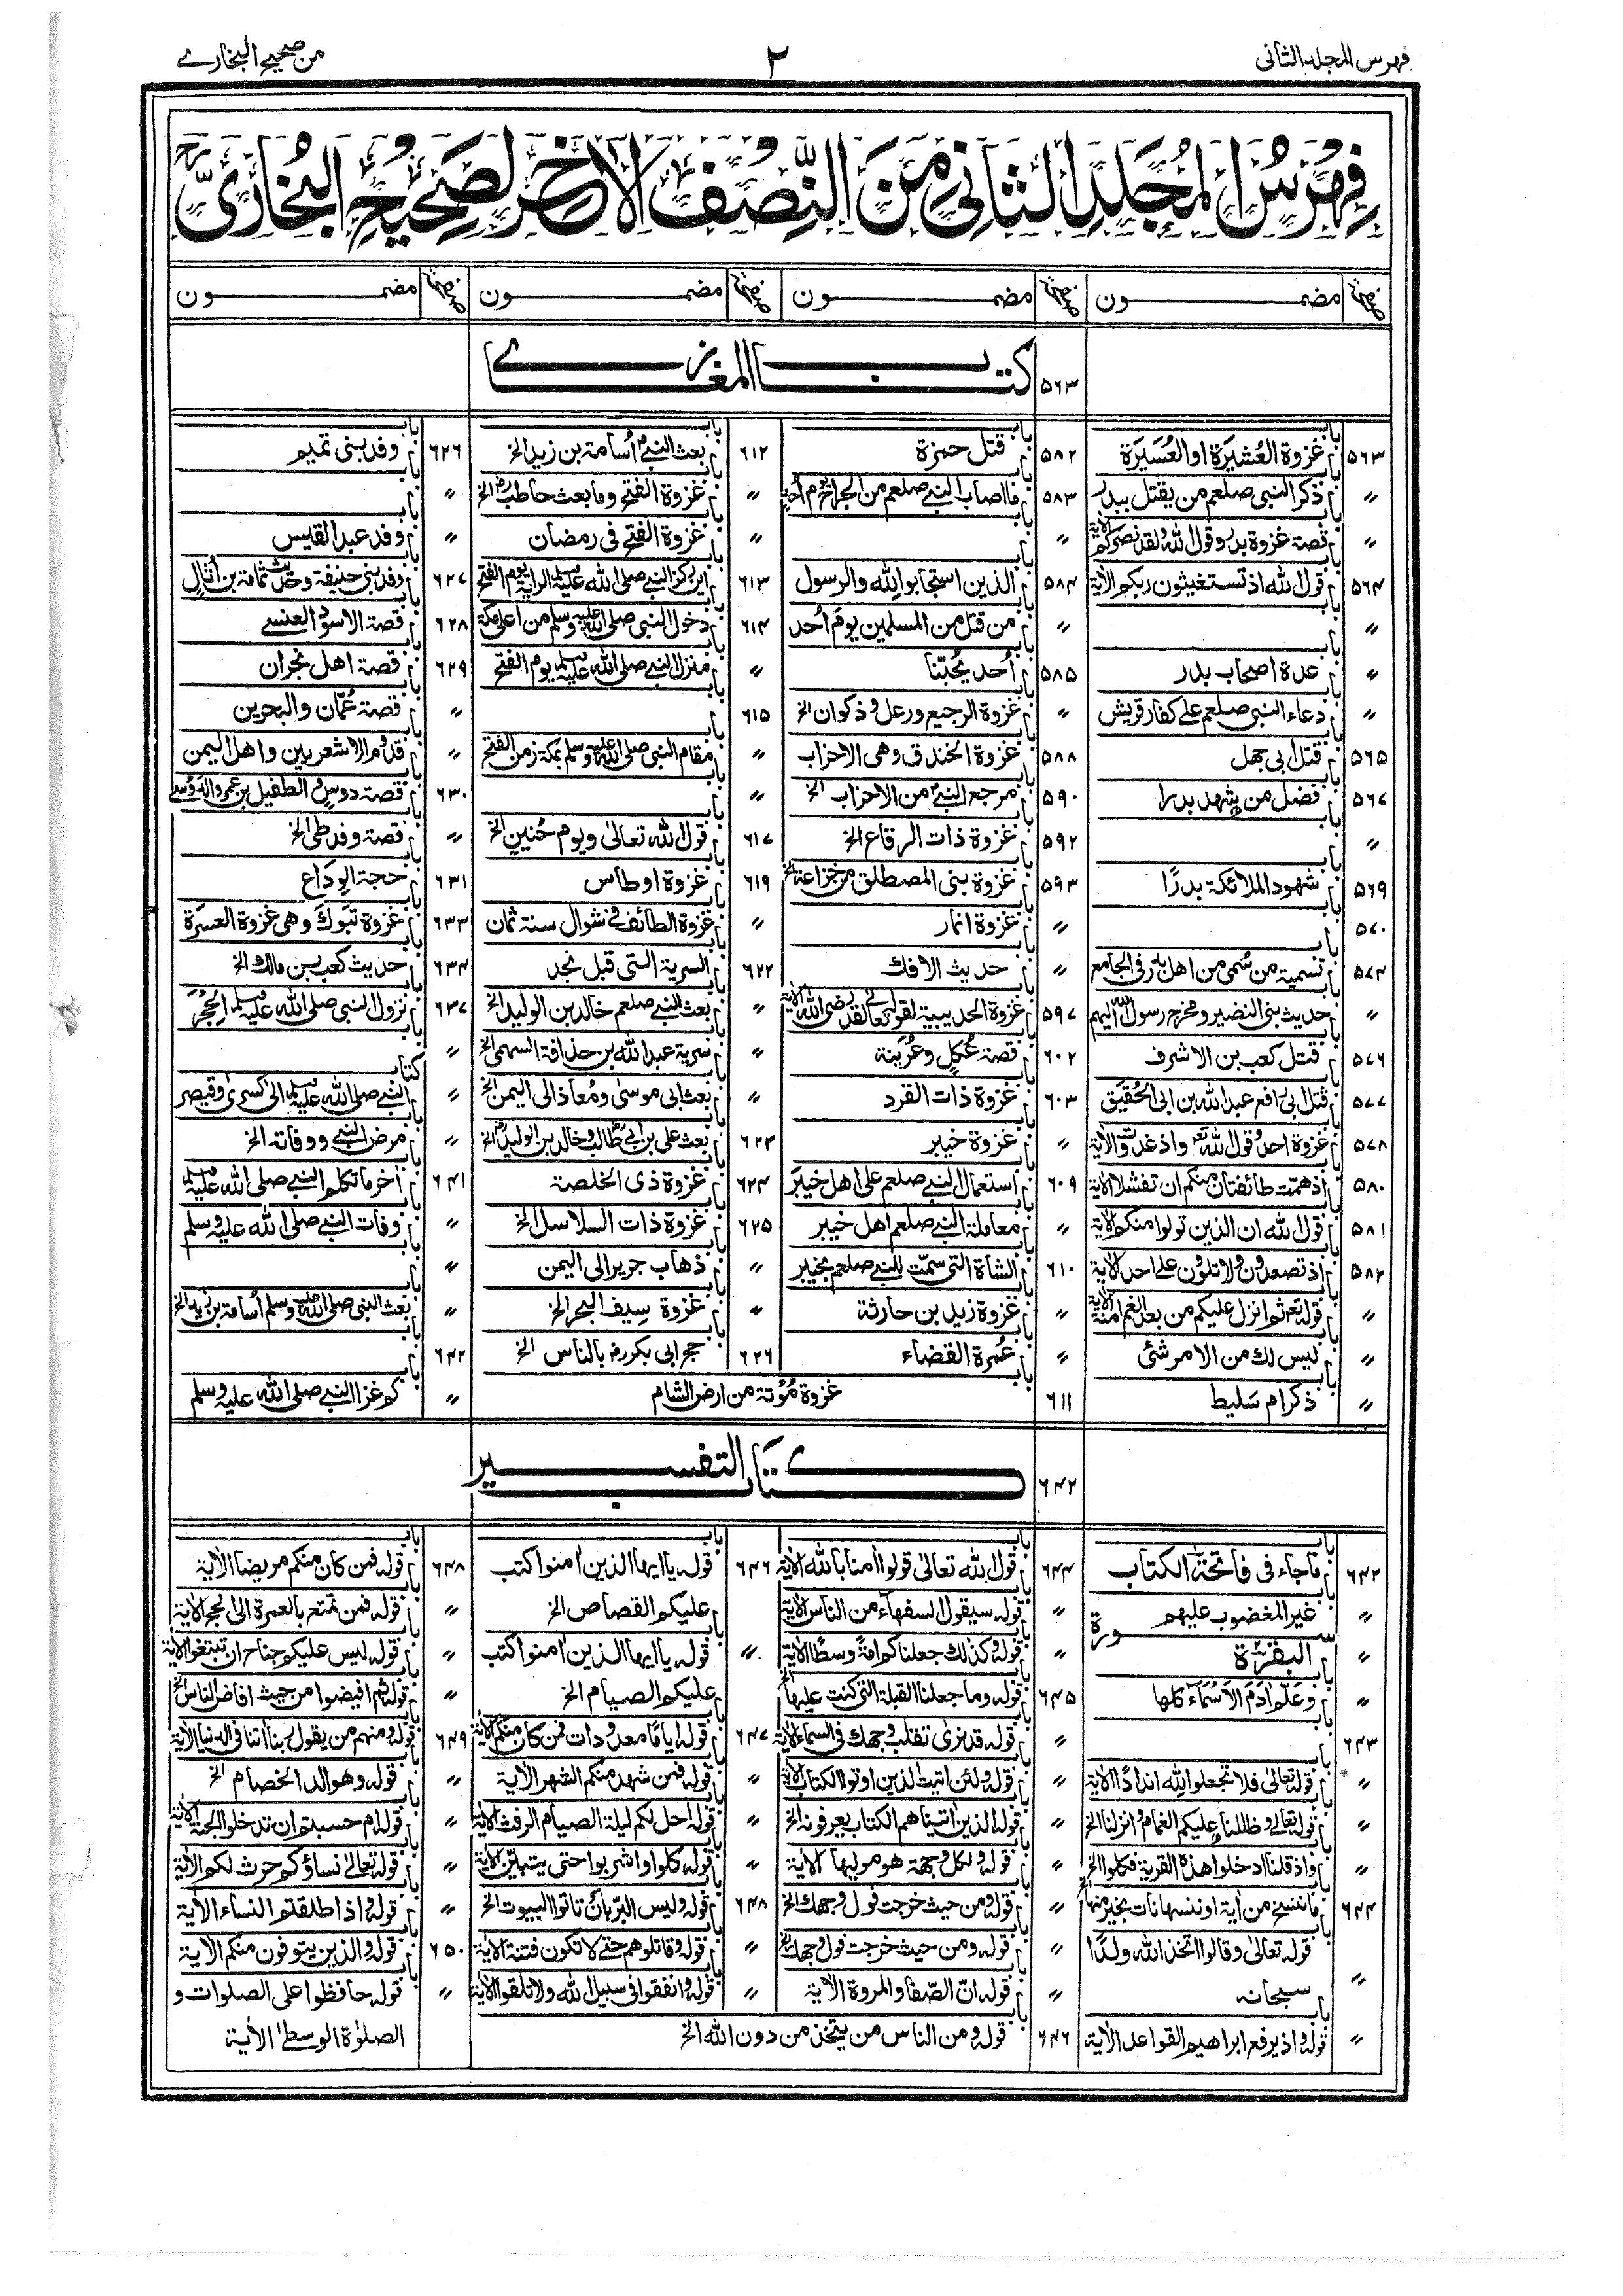 فهرس المجلد الثانی
۲
من صحیح البخاری
فِهْرِسُ الْمُجَلَّدِ الثَّانِیْ مِنَ النِّصْفِ الْاٰخِرِ لِصَحِیْحِ الْبُخَارِیِّ رح
صفحه مضمون صفحه مضمون صفحه مضمون صفحه مضمون
۵۶۳ کتاب المغازی
۵۶۳ باب غزوة العُشَیرة او العُسَیرة
〃 باب ذکر النبی صلعم من یقتل ببدر
〃 باب قصة غزوة بدر وقول الله ولقد نصرکم الاٰیة
۵۶۴ باب قول الله اذ تستغیثون ربکم الاٰیة
〃 باب
〃 باب عدة اصحاب بدر
〃 باب دعاء النبی صلعم علی کفار قریش
۵۶۵ باب قتل ابی جهل
۵۶۷ باب فضل من شهد بدرا
〃 باب
۵۶۹ باب شهود الملائکة بدرًا
۵۷۰ باب
۵۷۴ باب تسمیة من سُمی من اهل بدر فی الجامع
〃 باب حدیث بنی النضیر ومخرج رسول الله الیهم
۵۷۶ باب قتل کعب بن الاشرف
۵۷۷ باب قتل ابی رافع عبد الله بن ابی الحُقَیق
۵۷۸ باب غزوة احد وقول الله تعـ واذ غدوت الاٰیة
۵۸۰ باب اذ همّت طائفتان منکم ان تفشلا الاٰیة
۵۸۱ باب قول الله ان الذین تولوا منکم الاٰیة
۵۸۲ باب اذ تصعدون ولا تلون علی احد الاٰیة
〃 باب قوله ثم انزل علیکم من بعد الغم امنة الاٰیة
〃 باب لیس لك من الامر شئی
〃 باب ذکر ام سَلیط
۵۸۲ باب قتل حمزة
۵۸۳ باب ما اصاب النبی صلعم من الجراح یوم اُحد
〃 باب
۵۸۴ باب الذین استجابوا لله والرسول
〃 باب من قتل من المسلمین یوم اُحد
۵۸۵ باب اُحد یُحبّنا
〃 باب غزوة الرجیع ورعل وذکوان الخ
۵۸۸ باب غزوة الخندق وهی الاحزاب
۵۹۰ باب مرجع النبی من الاحزاب الخ
۵۹۲ باب غزوة ذات الرقاع الخ
۵۹۳ باب غزوة بنی المصطلق من خزاعة الخ
〃 باب غزوة انمار
〃 باب حدیث الافك
۵۹۷ باب غزوة الحدیبیة لقوله تعالٰی لقد رضی الله الاٰیة
۶۰۲ باب قصة عُکل وعُرَینة
۶۰۳ باب غزوة ذات القرد
〃 باب غزوة خیبر
۶۰۹ باب استعمال النبی صلعم علی اهل خیبَر
〃 باب معاملة النبی صلعم اهل خیبر
۶۱۰ باب الشاة التی سمّت للنبی صلعم بخیبر
〃 باب غزوة زید بن حارثة
〃 باب عُمرة القضاء
۶۱۱ باب غزوة مُؤتة من ارض الشام
۶۱۲ باب بعث النبی اُسامة بن زید الخ
〃 باب غزوة الفتح وما بعث حاطب الخ
〃 باب غزوة الفتح فی رمضان
۶۱۳ باب این رکز النبی صلی الله علیه وسلم الرایة یوم الفتح
۶۱۴ باب دخول النبی صلی الله علیه وسلم من اعلی مکة
〃 باب منزل النبی صلی الله علیه وسلم یوم الفتح
۶۱۵ باب
〃 باب مقام النبی صلی الله علیه وسلم بمکة زمن الفتح
〃 باب
۶۱۷ باب قول الله تعالٰی ویوم حُنین الخ
۶۱۹ باب غزوة اوطاس
〃 باب غزوة الطائف فی شوال سنة ثمان
۶۲۲ باب السریة التی قبل نجد
〃 باب بعث النبی صلعم خالد بن الولید الخ
〃 باب سریة عبد الله بن حذافة السهمی الخ
〃 باب بعث ابی موسٰی ومُعاذ الی الیمن الخ
۶۲۳ باب بعث علی بن ابی طالب وخالد بن الولید الخ
۶۲۴ باب غزوة ذی الخلصة
۶۲۵ باب غزوة ذات السلاسل الخ
〃 باب ذهاب جریر الی الیمن
〃 باب غزوة سیف البحر الخ
۶۲۶ باب حج ابی بکر رضـ بالناس الخ
۶۲۶ باب وفد بنی تمیم
〃 باب
〃 باب وفد عبد القیس
۶۲۷ باب وفد بنی حنیفة وحدیث ثمامة بن اُثال
۶۲۸ باب قصة الاسود العنسی
۶۲۹ باب قصة اهل نجران
〃 باب قصة عُمّان والبحرین
〃 باب قدوم الاشعریین واهل الیمن
۶۳۰ باب قصة دوس والطفیل بن عمرو الدوسی
〃 باب قصة وفد طی الخ
۶۳۱ باب حجة الوَدَاع
۶۳۳ باب غزوة تبوك وهی غزوة العسرة
۶۳۴ باب حدیث کعب بن مالك الخ
۶۳۷ باب نزول النبی صلی الله علیه وسلم الحِجْر
〃 باب
〃 کتاب النبی صلی الله علیه وسلم الی کسرٰی وقیصر
〃 باب مرض النبی ووفاته الخ
۶۴۱ باب اٰخر ما تکلم النبی صلی الله علیه وسلم
〃 باب وفات النبی صلی الله علیه وسلم
〃 باب
〃 باب بعث النبی صلی الله علیه وسلم اُسامة بن زید الخ
۶۴۲ باب
〃 باب کم غزا النبی صلی الله علیه وسلم
۶۴۲ کتاب التفسیر
۶۴۲ باب ماجاء فی فاتحة الکتاب
〃 باب غیر المغضوب علیهم
〃 سورة البقرة
〃 باب وعَلّم اٰدَمَ الْاَسْمَآءَ کلها
۶۴۳ باب
〃 باب قوله تعالٰی فلا تجعلوا لله اندادًا الاٰیة
〃 باب قوله تعالٰی وظللنا علیکم الغمام وانزلنا الخ
〃 باب واذ قلنا ادخلوا هذه القریة فکلوا الخ
۶۴۴ باب ما ننسخ من اٰیة او ننسها نات بخیر منها الخ
〃 قوله تعالٰی وقالوا اتخذ الله ولدًا
سبحانه
〃 باب قوله واذ یرفع ابراهیم القواعد الاٰیة
۶۴۴ باب قول الله تعالٰی قولوا اٰمنا بالله الاٰیة
〃 باب قوله سیقول السفهآء من الناس الاٰیة
〃 باب قوله وکذلك جعلناکم امةً وسطًا الاٰیة
۶۴۵ باب قوله وما جعلنا القبلة التی کنت علیها الخ
〃 باب قوله قد نرٰی تقلب وجهك فی السماء الاٰیة
〃 باب قوله ولئن اتیت الذین اوتوا الکتاب الاٰیة
〃 باب قوله الذین اٰتیناهم الکتاب یعرفونه الخ
〃 باب قوله ولکل وجهة هو مولیها الاٰیة
〃 باب قوله ومن حیث خرجت فول وجهك الخ
〃 باب قوله ومن حیث خرجت فول وجهك الخ
〃 باب قوله انّ الصّفا والمروة الاٰیة
۶۴۶ باب قوله ومن الناس من یتخذ من دون الله الخ
۶۴۶ باب قوله یاایها الذین اٰمنوا کتب
علیکم القصاص الخ
〃 باب قوله یاایها الذین اٰمنوا کتب
علیکم الصیام الخ
۶۴۷ باب قوله ایامًا معدودات فمن کان منکم الاٰیة
〃 باب قوله فمن شهد منکم الشهر الاٰیة
〃 باب قوله احل لکم لیلة الصیام الرفث الاٰیة
〃 باب قوله کلوا واشربوا حتی یتبین الاٰیة
۶۴۸ باب قوله ولیس البرّ بان تاتوا البیوت الخ
〃 باب قوله وقاتلوهم حتی لا تکون فتنة الاٰیة
〃 باب قوله وانفقوا فی سبیل الله ولا تلقوا الاٰیة
۶۴۸ باب قوله فمن کان منکم مریضا الاٰیة
〃 باب قوله فمن تمتع بالعمرة الی الحج الاٰیة
〃 باب قوله لیس علیکم جناح ان تبتغوا الاٰیة
〃 باب قوله ثم افیضوا من حیث افاض الناس الخ
۶۴۹ باب قوله ومنهم من یقول ربنا اٰتنا فی الدنیا الاٰیة
〃 باب قوله وهو الد الخصام الخ
〃 باب قوله ام حسبتم ان تدخلوا الجنة الاٰیة
〃 باب قوله تعالٰی نساؤکم حرث لکم الاٰیة
〃 باب قوله واذا طلقتم النساء الاٰیة
۶۵۰ باب قوله والذین یتوفون منکم الاٰیة
〃 باب قوله حافظوا علی الصلوات و
الصلوٰة الوسطٰی الاٰیة